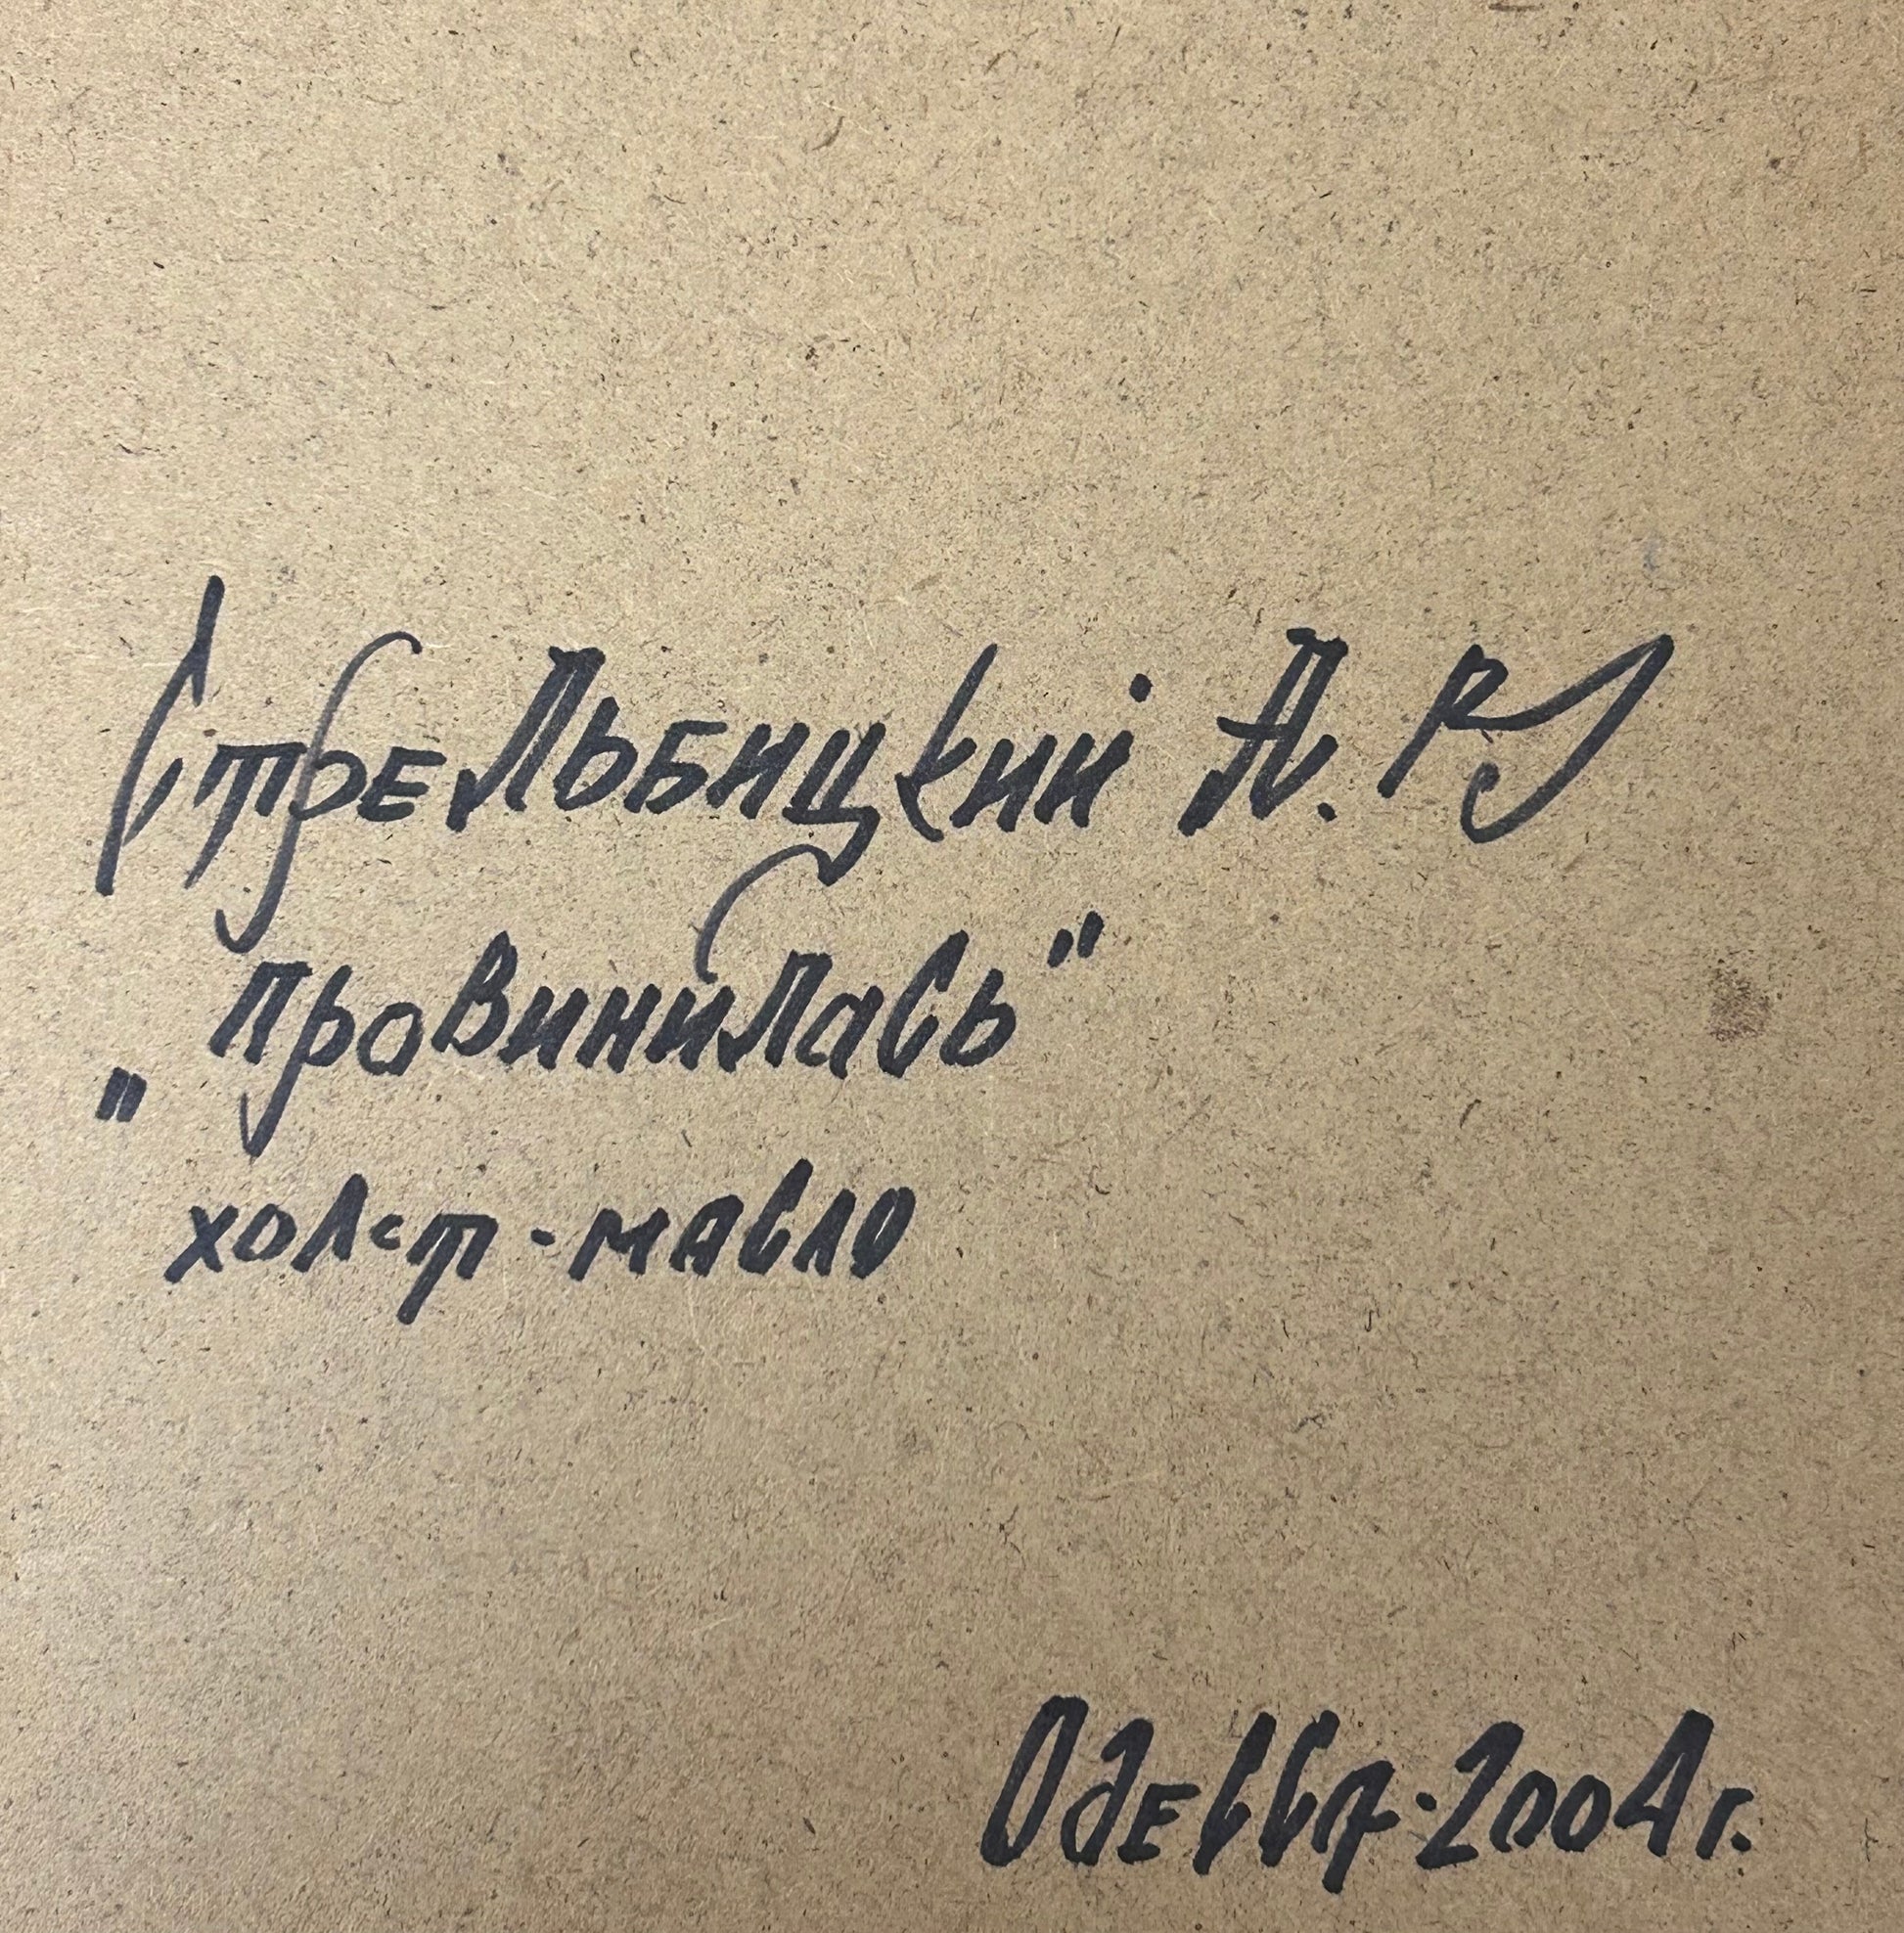 Стрельбицкий А.
„Провинилась"
холст-масло
Одесса-2004г.